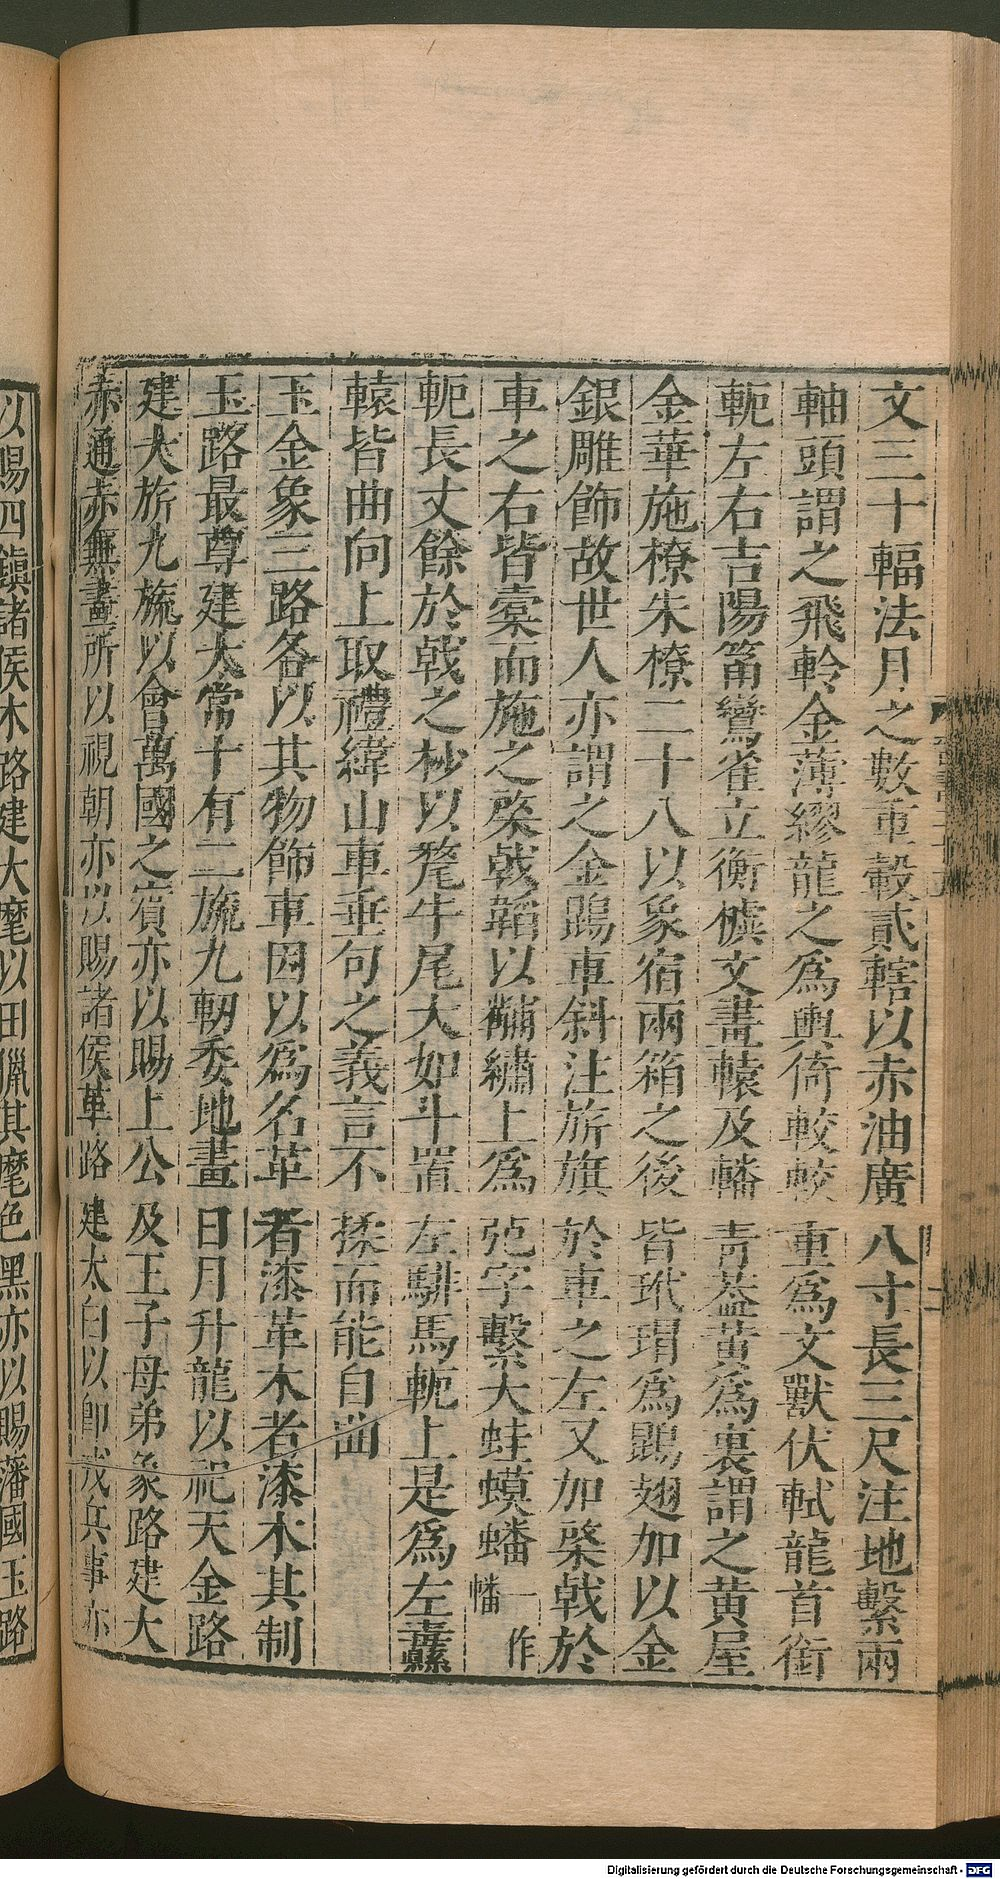 文三十輻法月之數重轂貳轄以赤油廣八寸長三尺注地繫兩
軸頭謂之飛軨金薄繆龍之爲輿倚較較重爲文獸伏軾龍首銜
軛左右吉陽筩鸞雀立衡㯫文畫轅及轓青蓋黄爲裏謂之黄屋
金華施橑朱橑二十八以象宿兩箱之後皆玳瑁爲鵾翅加以金
銀雕飾故世人亦謂之金鵄車斜注旂旗於車之左又加棨戟於
車之右皆橐而施之棨戟韜以黼繡上爲亞字繫大蛙蟆蟠一作幡
軛長丈餘於戟之杪以氂牛尾大如斗置左騑馬軛上是爲左纛
轅皆曲向上取禮緯山車垂句之義言不揉而能自曲
玉金象三路各以其物飾車因以爲名革者漆革木者漆木其制
玉路最尊建太常十有二旒九軔委地畫日月升龍以祀天金路
建大旂九旒以會萬國之賓亦以賜上公及王子母弟象路建大
赤通赤無畫所以視朝亦以賜諸侯革路建太白以卽戎兵事亦
以賜四鎮諸侯木路建大麾以田獵其麾色黑亦以賜藩國玉路
Digitalisierung gefördert durch die Deutsche Forschungsgemeinschaft - DFG